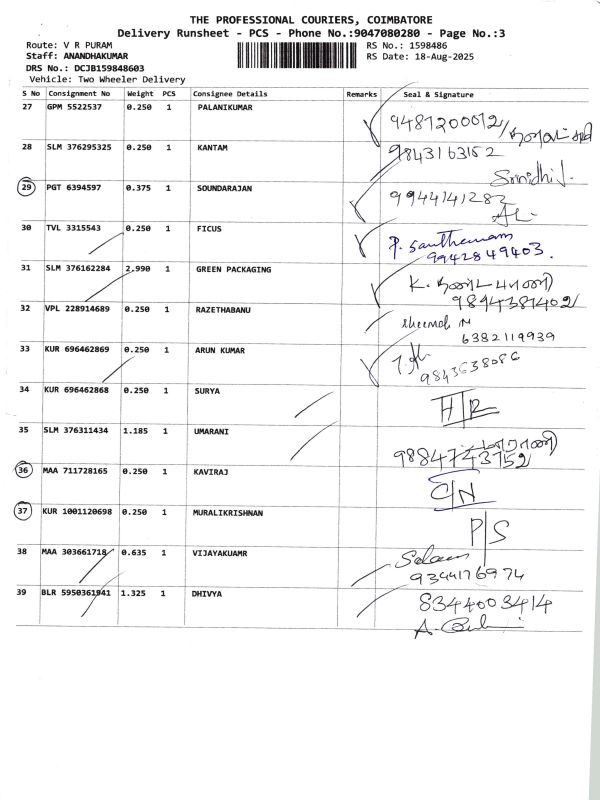 THE PROFESSIONAL COURIERS, COIMBATORE
Delivery Runsheet - PCS - Phone No.:9047080280 - Page No.:3
Route: V R PURAM
RS No.: 1598486
Staff: ANANDHAKUMAR
RS Date: 18-Aug-2025
DRS No.: DCJB159848603
Vehicle: Two Wheeler Delivery
S No Consignment No Weight PCS Consignee Details Remarks Seal & Signature
27 GPM 5522537 0.250 1 PALANIKUMAR 9487200012/
28 SLM 376295325 0.250 1 KANTAM 9843163152
Srinidhi J.
29 PGT 6394597 0.375 1 SOUNDARAJAN 9944141283
30 TVL 3315543 0.250 1 FICUS P. Santhanam
9942849403.
31 SLM 376162284 2.990 1 GREEN PACKAGING K.
9894381402/
32 VPL 228914689 0.250 1 RAZETHABANU sheemah M
6382119939
33 KUR 696462869 0.250 1 ARUN KUMAR
9843638086
34 KUR 696462868 0.250 1 SURYA H/R
35 SLM 376311434 1.185 1 UMARANI
9884743752
36 MAA 711728165 0.250 1 KAVIRAJ C/N
37 KUR 1001120698 0.250 1 MURALIKRISHNAN P/S
38 MAA 303661718 0.635 1 VIJAYAKUAMR Selam
9344176974
39 BLR 5950361941 1.325 1 DHIVYA 8344003414